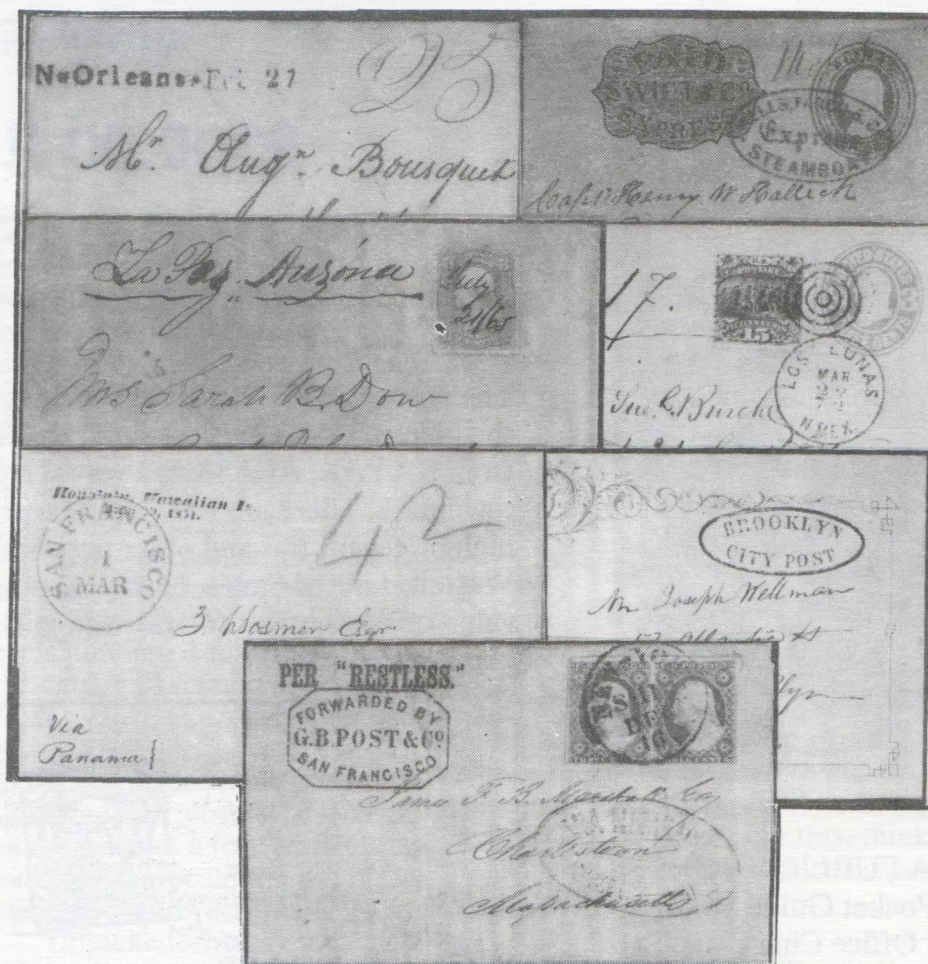 N*Orleans*Feb 27
25
Mr. Augn. Bousquet
PAID
SWIFT & Co
EXPRESS
WELLS, FARGO & Co
Express
STEAMBOAT
Capt. Henry W. Halleck
La Paz, Arizona
July
21/65
Mrs Sarah B. Dow
17.
15
LOS LUNAS
MAR
22
N.MEX.
Honolulu, Hawaiian Is.
SAN FRANCISCO
1
MAR
42
Hosmer Esqr
Via
Panama
BROOKLYN
CITY POST
Mr Joseph Wellman
Atlantic st
PER "RESTLESS."
FORWARDED BY
G.B. POST & Co
SAN FRANCISCO
DE
16
James F. B. Marshall Esq
Charlestown
Massachusetts
Pocket Guide
Office